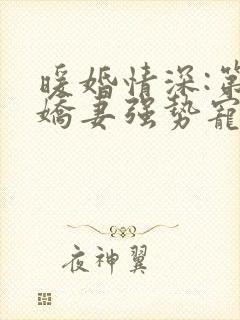 暖婚情深:第
嬌妻强势寵
夜神翼